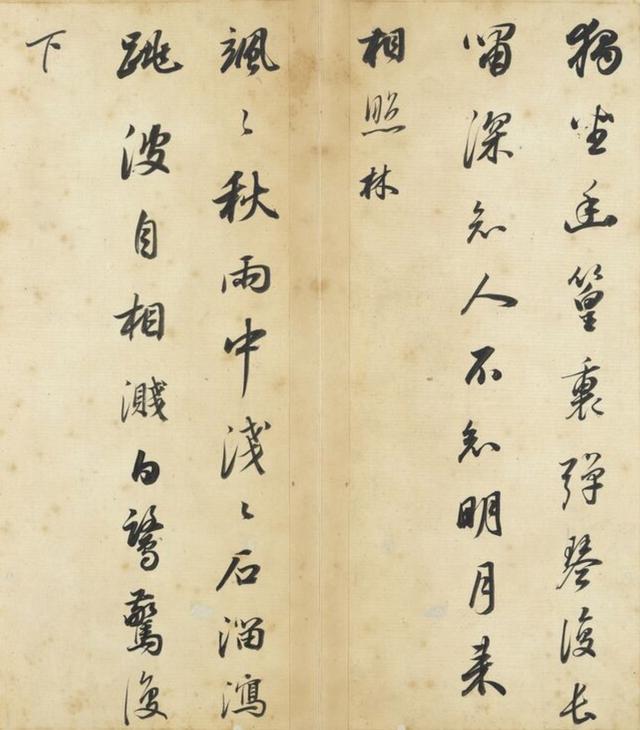 獨坐幽篁裏彈琴復長
嘯深知人不知明月来
相照林
颯〻秋雨中淺〻石溜瀉
跳波自相濺白鷺驚復
下